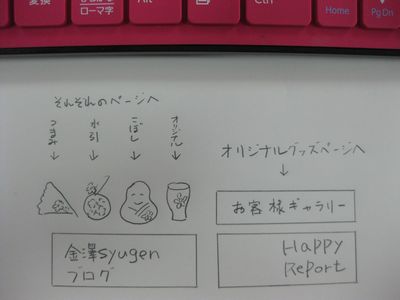 変換
ローマ字
Alt
Ctrl
Home
PgDn
それぞれのページへ
つまみ
水引
こぼし
オリジナル
オリジナルグッズページへ
お客様ギャラリー
金澤syugen
ブログ
Happy
Report